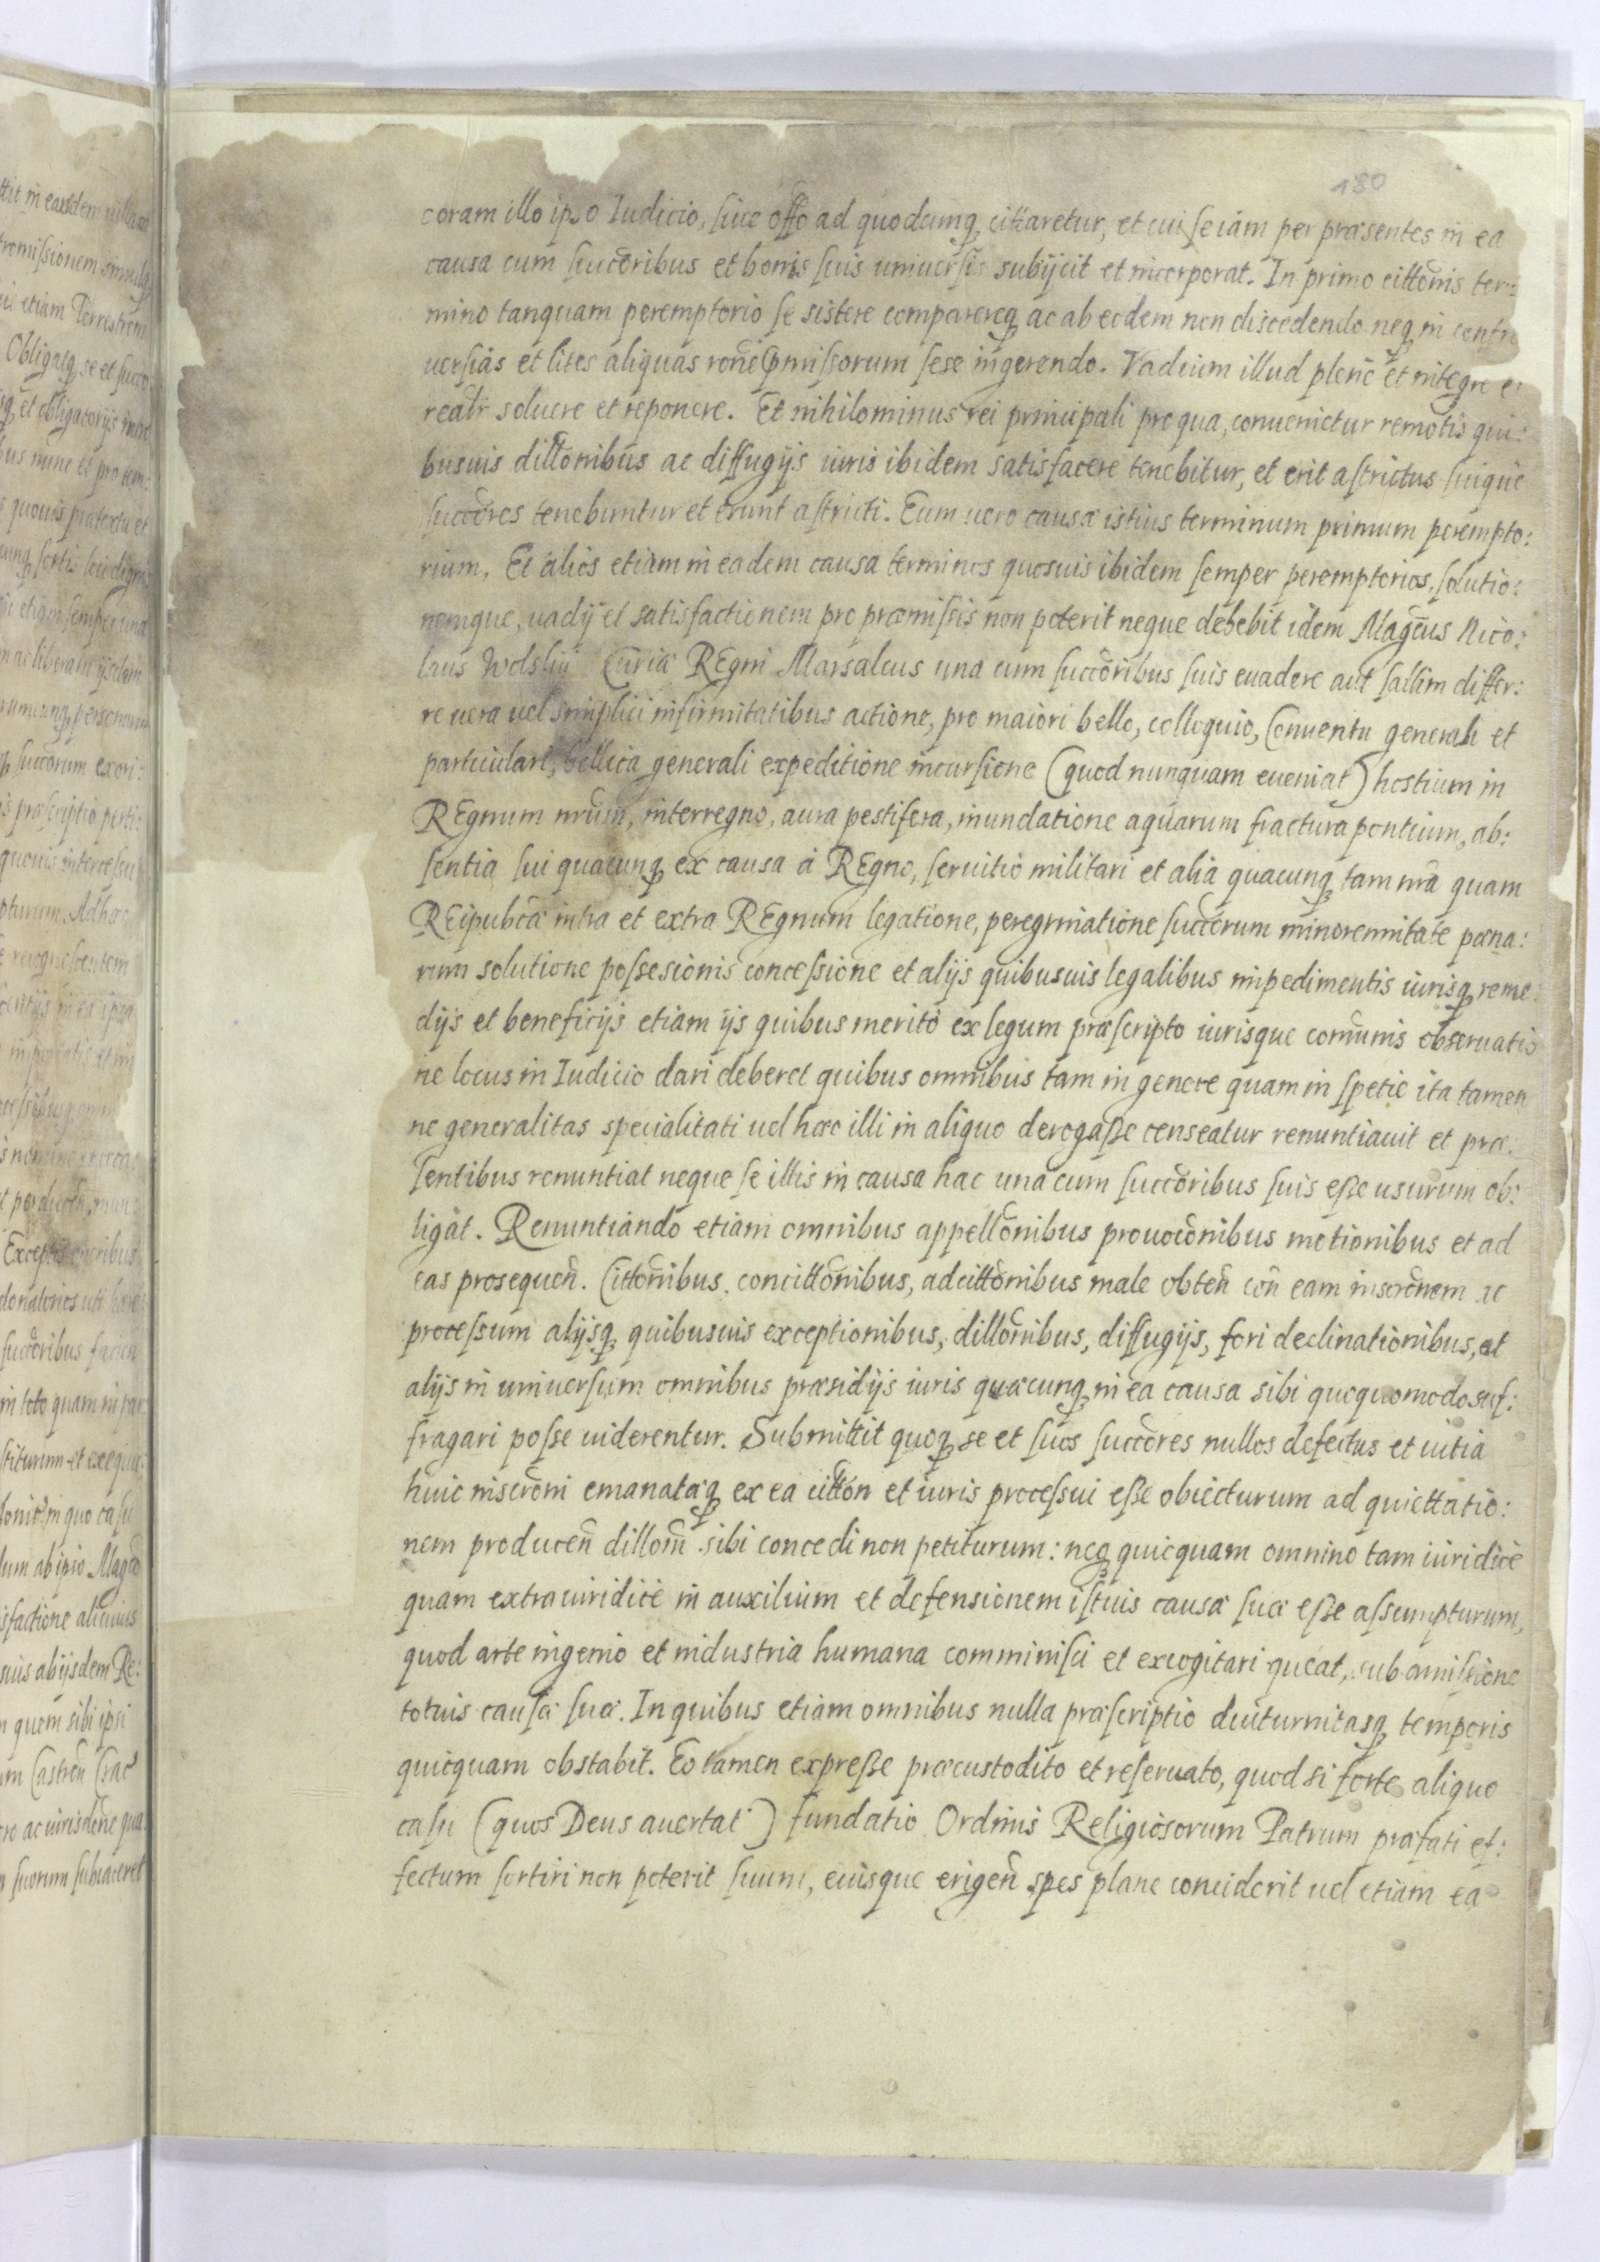 180
coram illo ipso Iudicio, siue offo ad quodcumq, citaretur, et cui se iam per præsentes in ea
causa cum succoribus et bonis suis uniuersis subijcit et incorporat. In primo cittonis ter:
mino tanquam peremptorio se sistere comparereq, ac ab eodem non discedendo neq, in contro
uersias et lites aliquas rone pmissorum sese ingerendo. Vadium illud plene et integre et
realr soluere et reponere. Et nihilominus rei principali pro qua, conuenietur remotis qui:
busuis dillonibus ac diffugijs iuris ibidem satisfacere tenebitur, et erit astrictus suique
succores tenebuntur et erunt astricti. Eum uero causæ istius terminum primum perempto:
rium, Et alios etiam in eadem causa terminos quosuis ibidem semper peremptorios, solutio:
nemque, uadij et satisfactionem pro præmissis non poterit neque debebit idem Magcus Nico:
laus Wolskij Curiæ REgni Marsalcus una cum succoribus suis euadere aut saltim differ:
re uera uel simplici infirmitatibus actione, pro maiori bello, colloquio, Conuentu generali et
particulari, bellica generali expeditione incursione (quod nunquam eueniat) hostium in
REgnum nrum, interregno, aura pestifera, inundatione aquarum fractura pontium, ab:
sentia sui quacunq, ex causa à REgno, seruitio militari et alia quacunq, tam nra quam
REipubcæ intra et extra REgnum legatione, peregrinatione succorum minorennitate pœna:
rum solutione possesionis concessione et alijs quibusuis legalibus impedimentis iurisq, reme:
dijs et beneficijs etiam ijs quibus merito ex legum præscripto iurisque comunis obseruatio
ne locus in Iudicio dari deberet quibus omnibus tam in genere quam in spetie ita tamen
ne generalitas specialitati uel hæc illi in aliquo derogasse censeatur renuntiauit et præ.
sentibus renuntiat neque se illis in causa hac una cum succoribus suis esse usurum ob:
ligat. Renuntiando etiam omnibus appellonibus prouoconibus motionibus et ad
eas prosequen. Cittonibus, concittonibus, adcittonibus male obten con eam inscronem ac
processum alijsq, quibusuis exceptionibus, dillonibus, diffugijs, fori declinationibus, et
alijs in uniuersum omnibus præsidijs iuris quæcunq, in ea causa sibi quoquomodo suf:
fragari posse uiderentur. Submittit quoq, se et suos succores nullos defectus et uitia
huic inscroni emanatæq, ex ea citton et iuris processui esse obiecturum ad quiettatio:
nem producen dillom sibi concedi non petiturum: neq, quicquam omnino tam iuridicè
quam extraiuridicè in auxilium et defensionem istius causæ suæ esse assumpturum,
quod arte ingenio et industria humana comminisci et excogitari queat, sub amissione
totius causæ suæ. In quibus etiam omnibus nulla præscriptio diuturnitasq, temporis
quicquam obstabit. Eo tamen expresse præcustodito et reseruato, quod si forte aliquo
casu (quos Deus auertat) fundatio Ordinis Religiosorum Patrum præfati ef:
fectum sortiri non poterit suum, eiusque erigen spes plane conciderit uel etiam ea